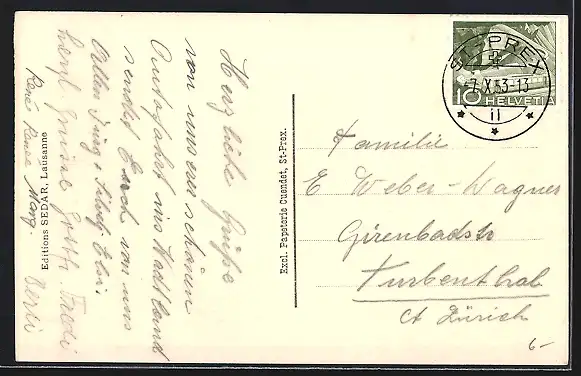 Herzliche Grüsse
von unserer schönen
Autofahrt ins Waadtland
sendet Euch von uns
Allen
herzl. Grüsse
René Renée Marg.
Editions SEDAR, Lausanne
Excl. Papeterie Cuendet, St-Prex.
ST-PREX
-7.X.53-13
11
10 HELVETIA
Familie
E Weber-Wagner
Girenbadstr
Turbenthal
Ct Zürich
6-